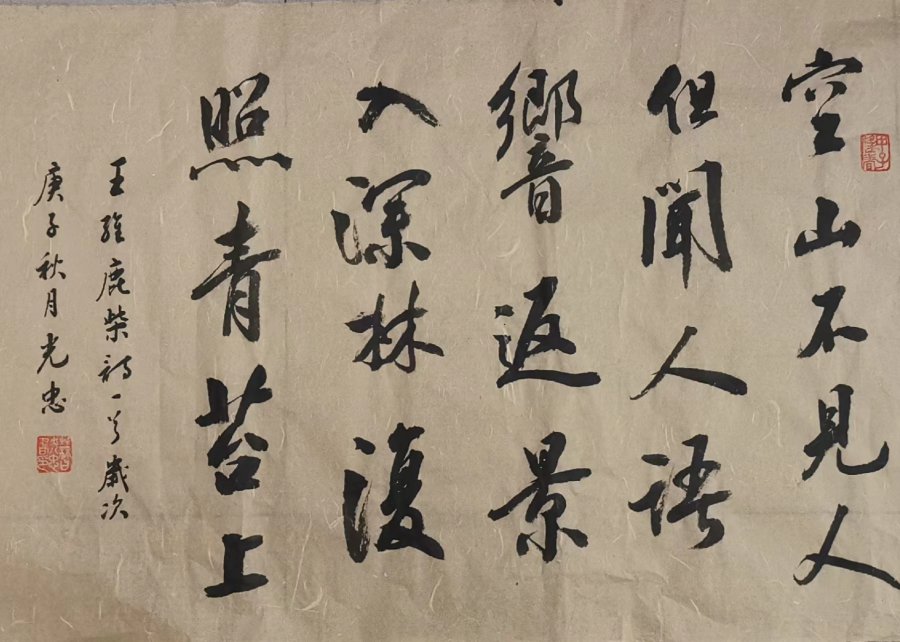 空山不見人
但聞人語
響返景
入深林復
照青苔上
王維鹿柴詩一首歲次
庚子秋月光忠